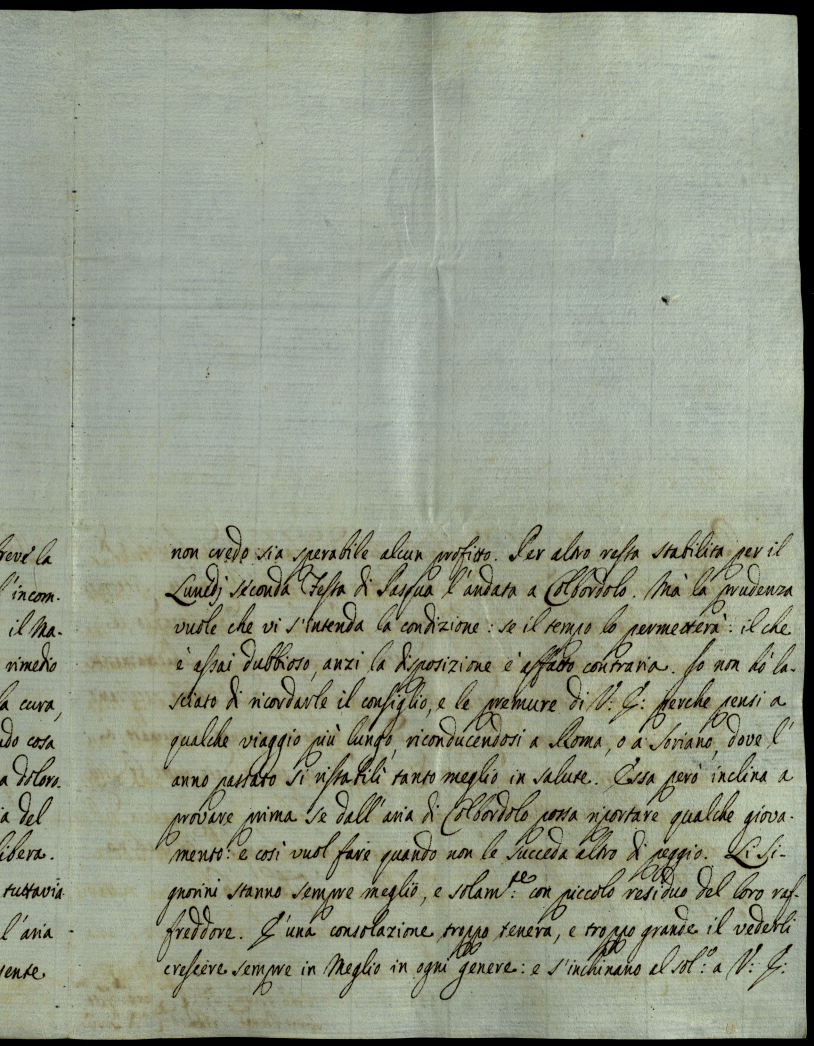 reve la
l'incom-
il Ma-
rimedio
la cura,
ndo cosa
a doloro.
ia del
libera.
tuttavia
l'aria
sente
non credo sia sperabile alcun profitto. Per altro resta stabilita per il
Lunedj seconda Festa di Pasqua l'andata a Colbordolo. Mà la prudenza
vuole che vi s'intenda la condizione: se il tempo lo permetterà: il che
è assai dubbioso, anzi la disposizione è affatto contraria. Io non hò la-
sciato di ricordarle il consiglio, e le premure di V: E: perche pensi a
qualche viaggio più lungo, riconducendosi a Roma, o a Soriano, dove l'
anno passato si ristabilì tanto meglio in salute. Essa però inclina a
provare prima se dall'aria di Colbordolo possa riportare qualche giova-
mento: e così vuol fare quando non le succeda altro di peggio. Li Si-
gnorini stanno sempre meglio, e solam.te con piccolo residuo del loro raf-
freddore. E' una consolazione troppo tenera, e troppo grande il vederli
crescere sempre in Meglio in ogni genere: e s'inchinano al sol.o a V: E: